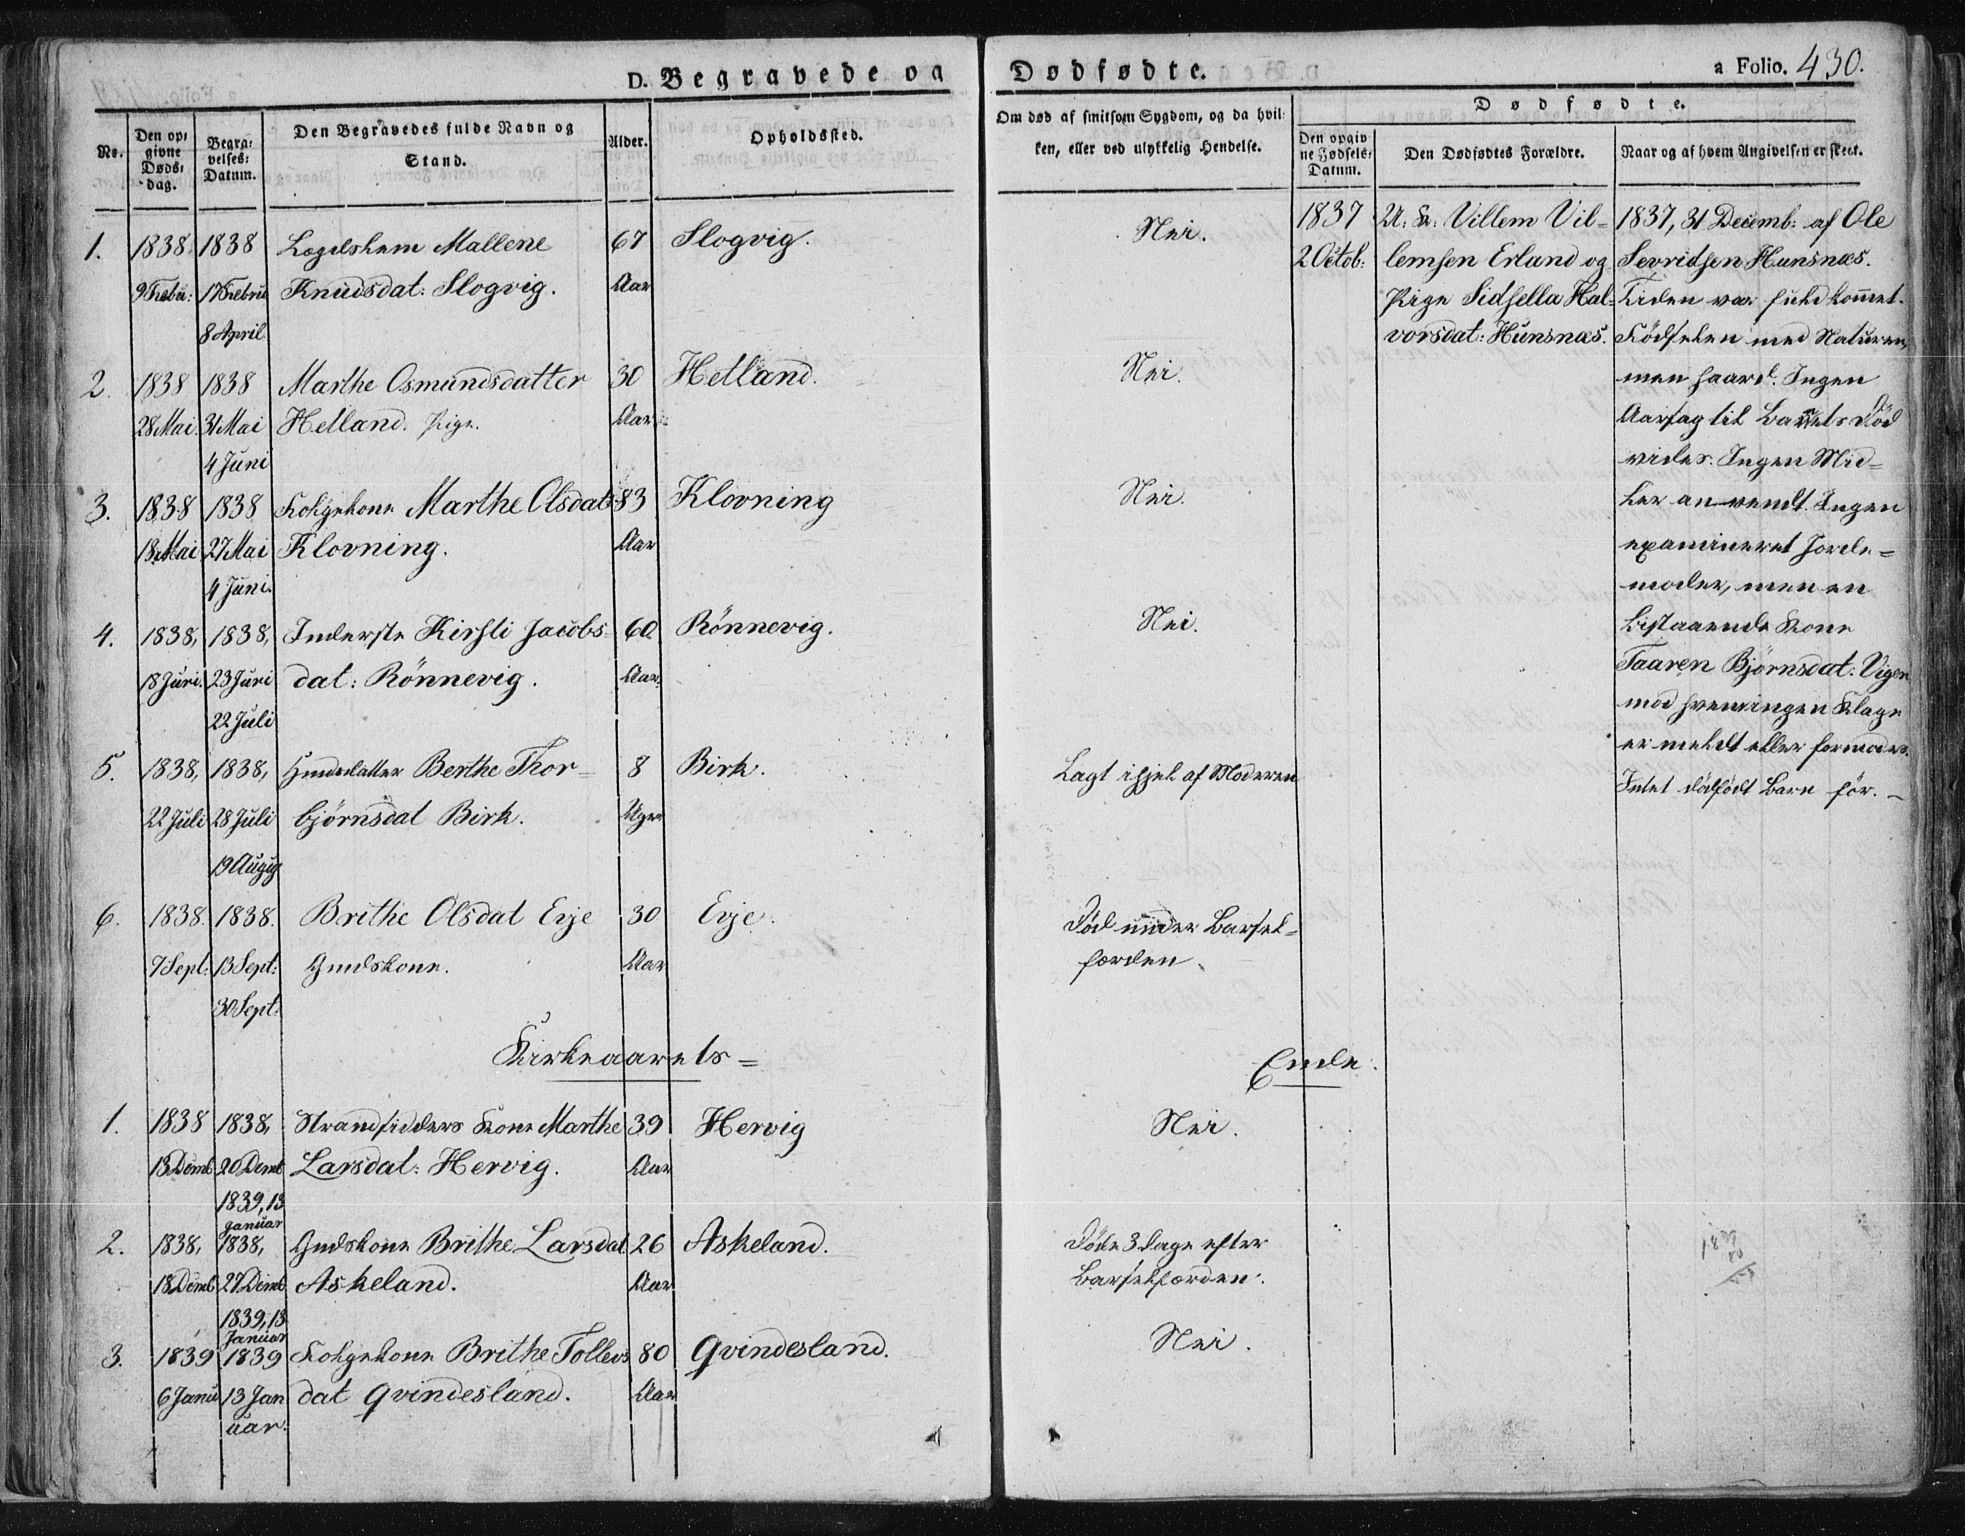 D. Begravede og
Dødfødte.
a Folio. 430.
No.
Den opgivne Dødsdag.
Begravelses: Datum.
Den Begravedes fulde Navn og Stand.
Alder.
Opholdssted.
Om død af smitsom Sygdom, og da hvilken, eller ved ulykkelig Hendelse.
Dødfødte.
Den opgivne Fødsels: Datum.
Den Dødfødtes Forældre.
Naar og af hvem Angivelsen er skeet.
1. 1838 1838 Mallene 67 Slogvig. Nei.
9 Febru: 17 Febru Knudsdat: Slogvig. Aar
8 April
2. 1838 1838 Marthe Osmundsdatter 30 Hetland. Nei.
28 Mai. 31 Mai Hetland. Pige. Aar
4 Juni
3. 1838 1838 Folgekone Marthe Olsdat: 83 Klovning Nei.
18 Mai 27 Mai Klovning. Aar
4 Juni.
4. 1838, 1838, Inderste Kirsti Jacobs- 60 Rönnevig. Nei.
18 Juni. 23 Juni dat: Rönnevig. Aar.
22 Juli
5. 1838, 1838, Berthe Thor- 8 Birk. Lagt ihjel af Moderen
22 Juli 28 Juli bjørnsdat Birk. Uger
19 Augug
6. 1838. 1838. Brithe Olsdat Evje 30 Evje. Död under Barsel-
7 Sept: 13 Sept: Gmdskone. Aar færden.
30 Sept:
1837 U. K. Villem Vil- 1837, 31 Decemb: af Ole
2 Octob: lemsen Erland og Sevridsen Hunsnæs.
Pige Sidsella Hal- Tiden var fuldkommet.
vorsdat: Hunsnæs. Födselen med Naturen,
men haard. Ingen
Aarsag til Barnets Död
vides. Ingen Mid-
ler anvendt. Ingen
examineret Jorde-
moder, men en
bistaaende Kone
Taaren Björnsdat: Vigen
mod hvem ingen Klage
er meldt eller formodes.
Intet dödfödt Barn för. -
Kirkeaarets = Ende.
1. 1838 1838, Strandsidders Kone Marthe 39 Hervig Nei.
13 Demb 20 Demb Larsdat: Hervig. Aar
1839, 13
Januar
2. 1838, 1838, Gmdskone Brithe Larsdat 26 Askeland. Döde 3 Dage efter
18 Demb 27 Demb Askeland. Aar Barselfærden.
1839, 13
Januar
3. 1839 1839 Folgekone Brithe Tollevs 80 Qvindesland. Nei.
6 Janu 13 Jan dat Qvindesland. Aar
uar.